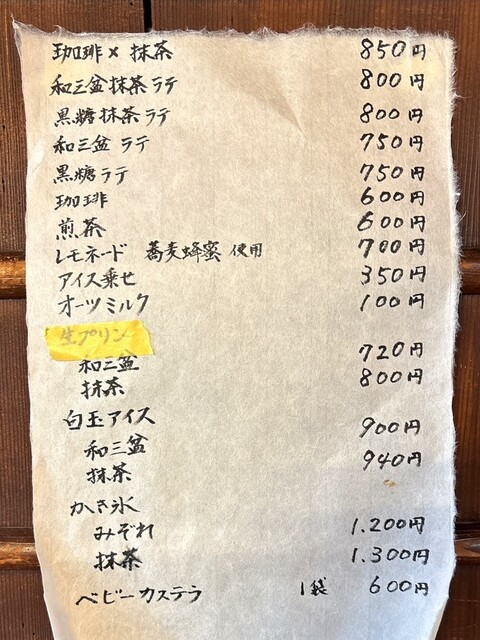 珈琲×抹茶 850円
和三盆抹茶ラテ 800円
黒糖抹茶ラテ 800円
和三盆ラテ 750円
黒糖ラテ 750円
珈琲 600円
煎茶 600円
レモネード 蕎麦蜂蜜 使用 700円
アイス乗せ 350円
オーツミルク 100円
生プリン
和三盆 720円
抹茶 800円
白玉アイス
和三盆 900円
抹茶 940円
かき氷
みぞれ 1.200円
抹茶 1.300円
ベビーカステラ 1袋 600円